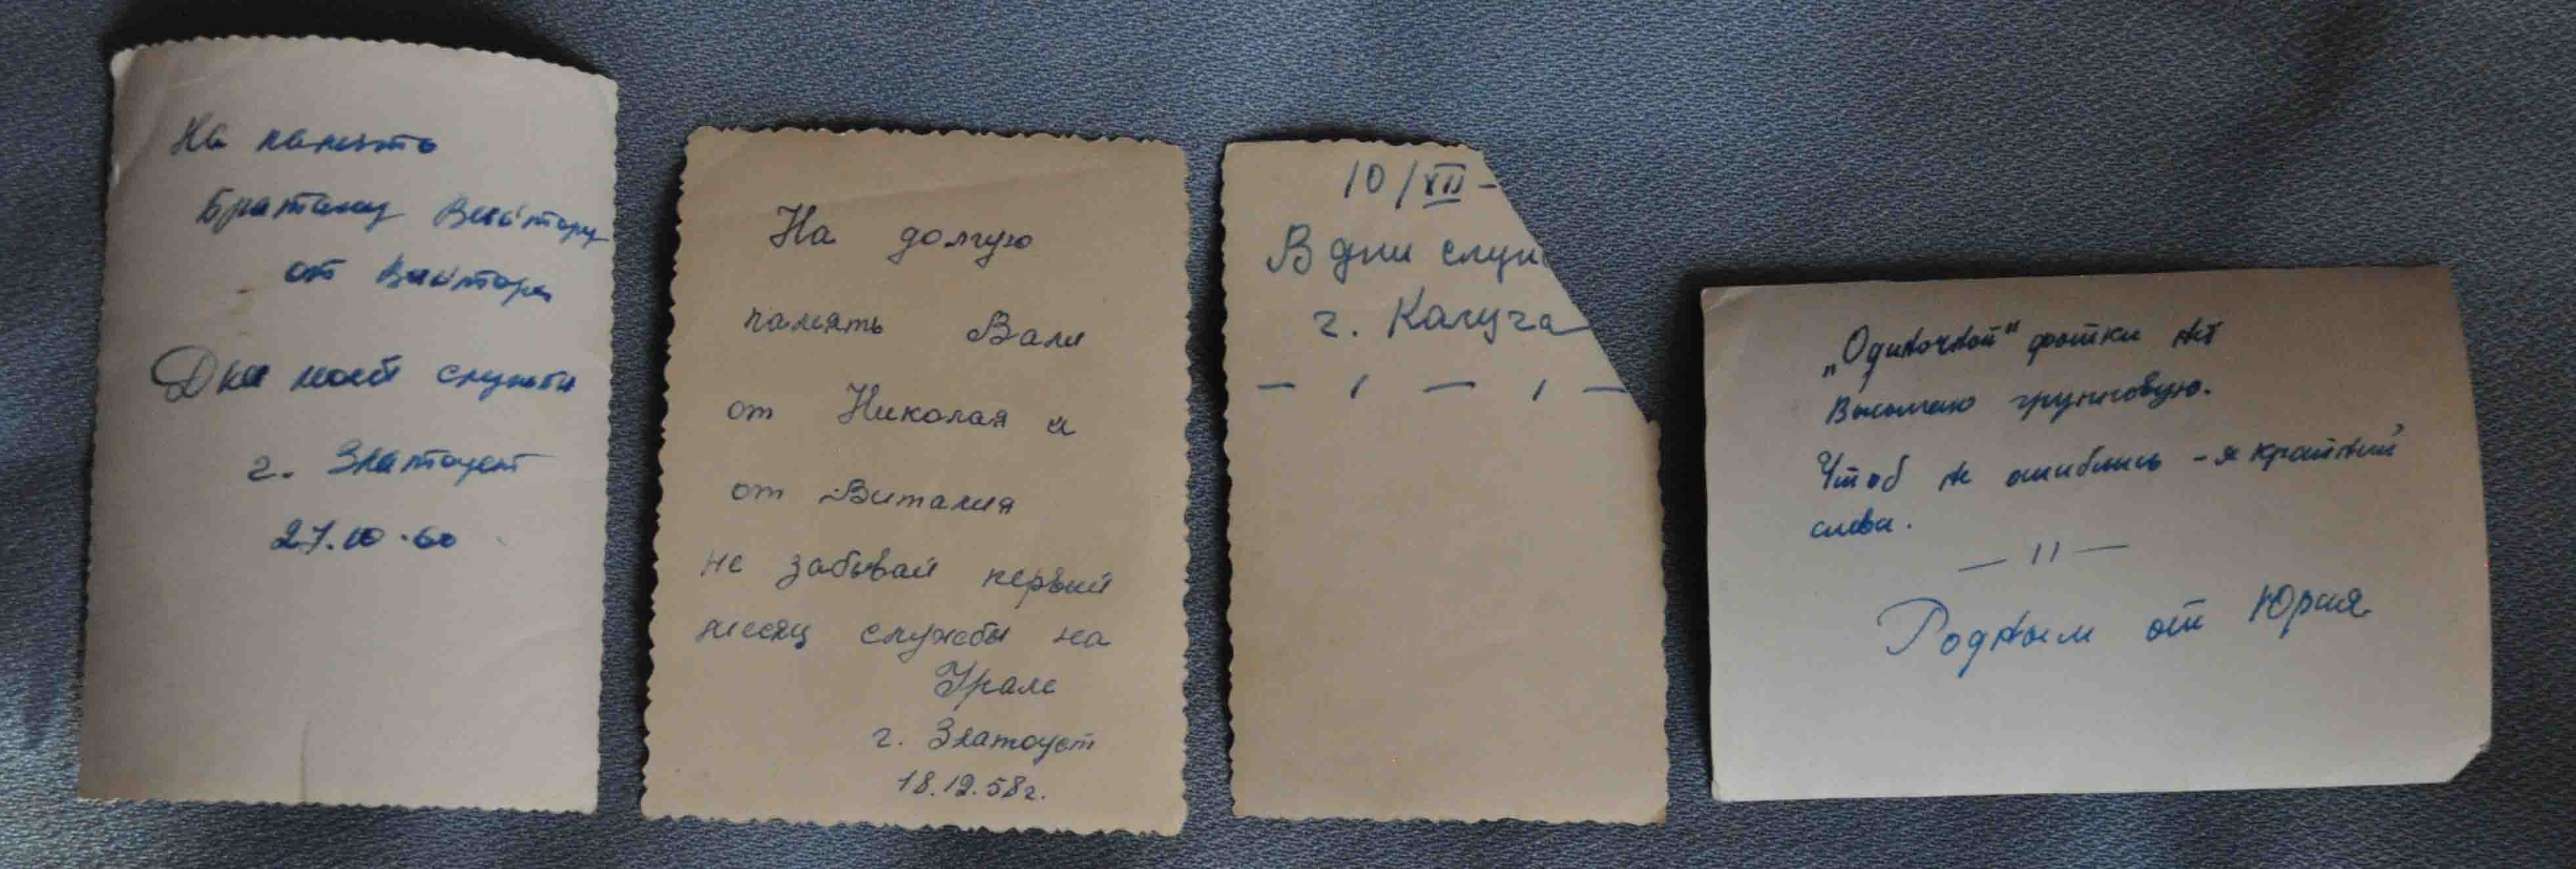 На память
братану Виктору
от Виктора
Дни моей службы
г. Златоуст
27.10.60
На долгую
память Вале
от Николая и
от Виталия
не забывай первый
месяц службы на
Урале
г. Златоуст
18.12.58г.
10/XII-
В дни служ
г. Калуга
— , — , —
„Одиночной" фотки нет
Высылаю групповую.
Чтоб не ошиблись - я крайний
слева.
— 11 —
Родным от Юрия